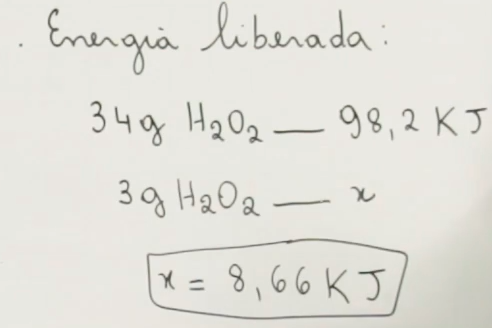 . Energia liberada:
34g H₂O₂ — 98,2 KJ
3g H₂O₂ — x
x = 8,66 KJ